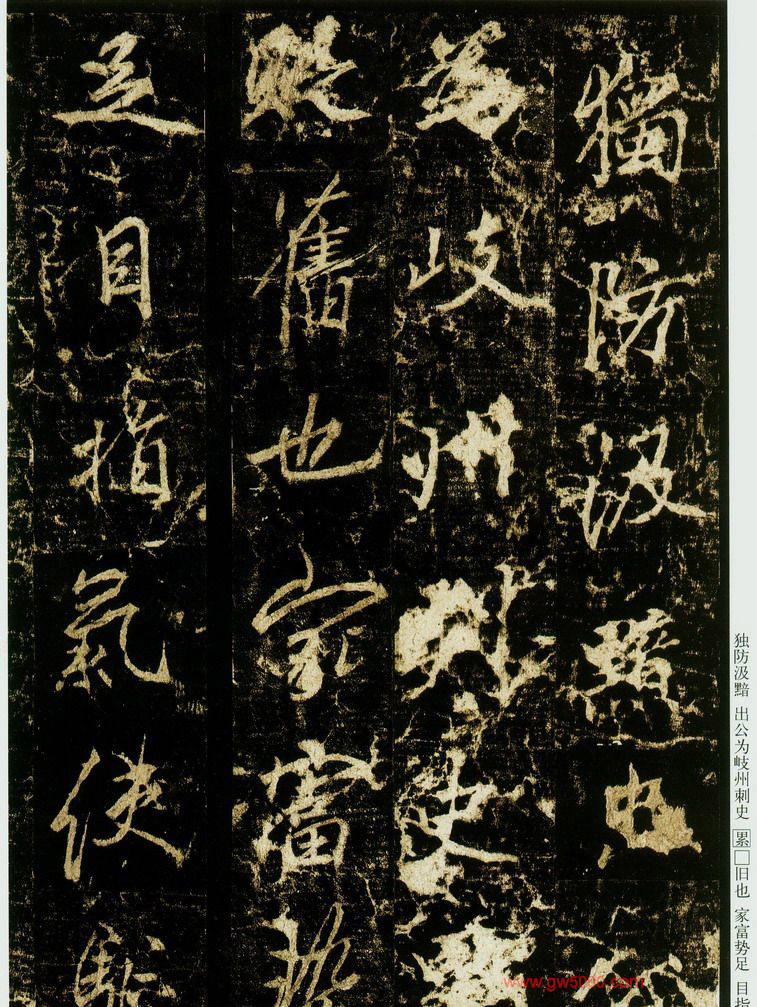 獨防汲黯出
為岐州刺史
舊也家富勢
足目指氣使
独防汲黯 出公为岐州刺史 累□旧也 家富势足 目指
www.gw5000.com